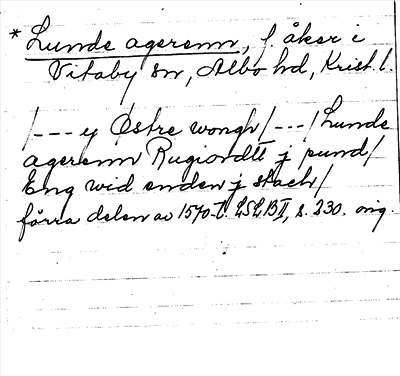 * Lunde agerenn, f. åker i
Vitaby sn, Albo hd, Krist. l.
/--- y Østre wongh/---/Lunde
agerenn Rugiordtt j pund/
Eng wid enden j stach/
förra delen av 1570-t. LSLB II, s. 230. orig.